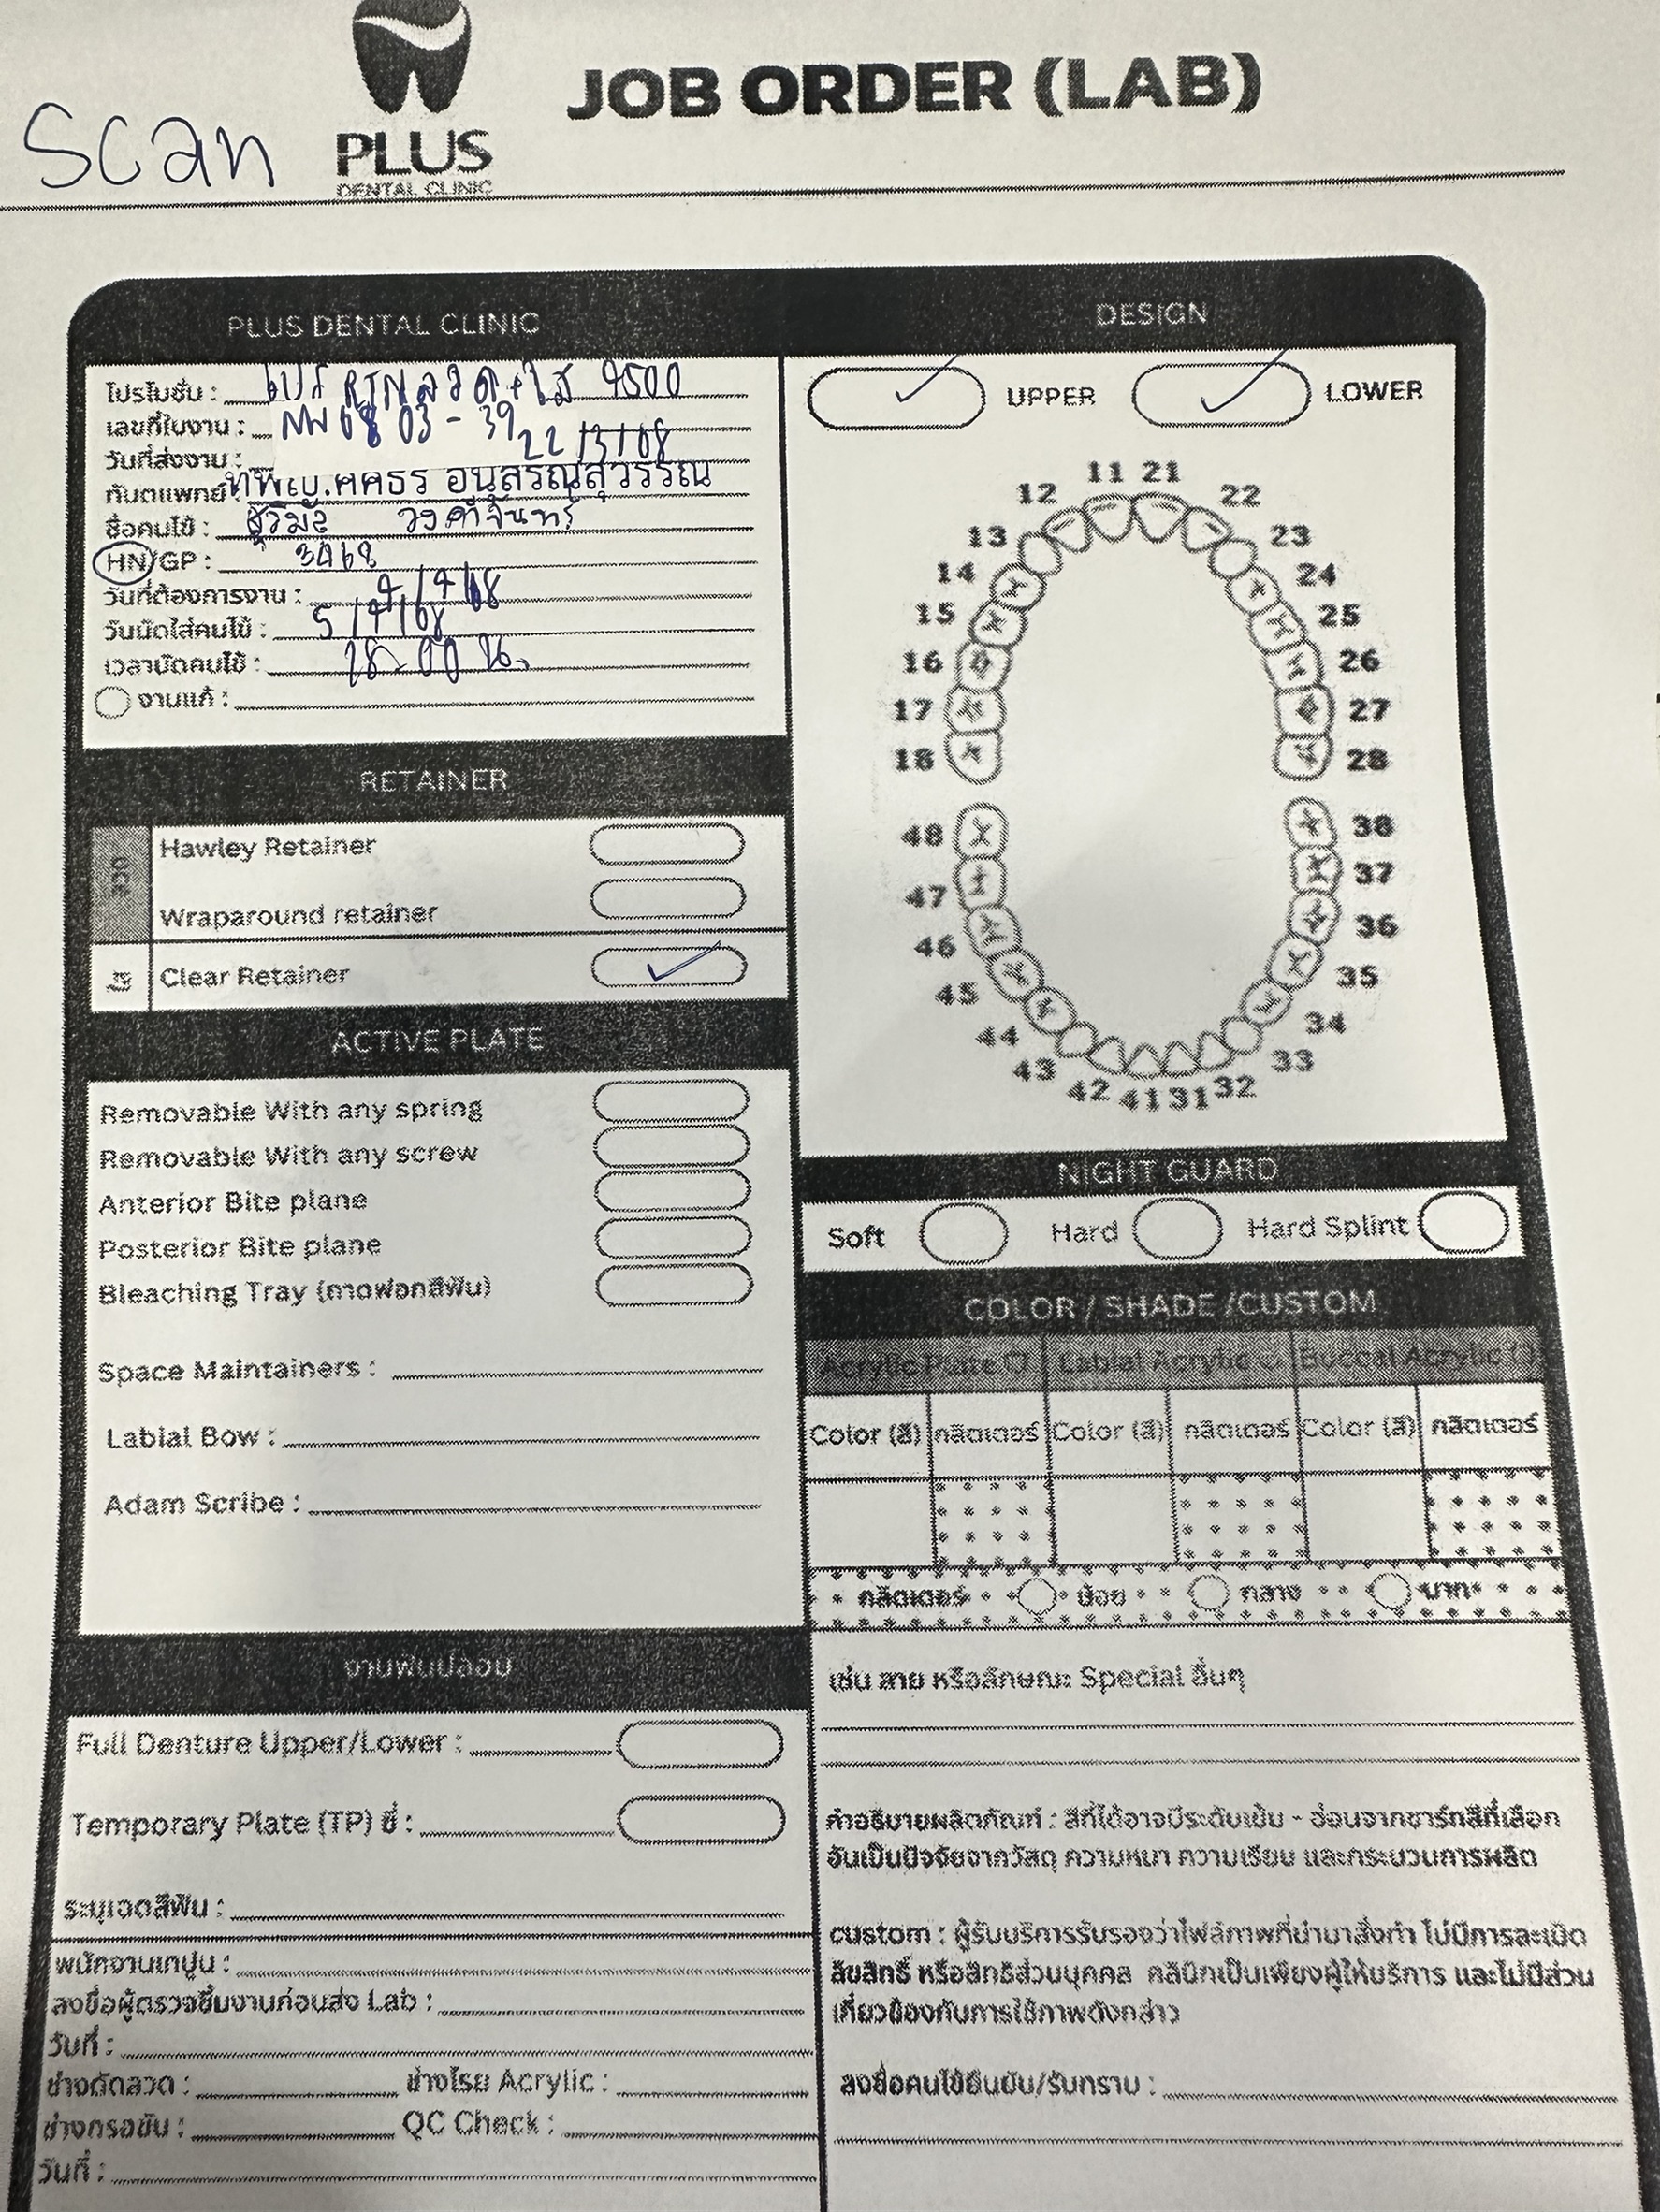 Scan
PLUS
DENTAL CLINIC
JOB ORDER (LAB)
PLUS DENTAL CLINIC
โปรโมชั่น : โปร RTN ลวด+ใส 4500
เลขที่ใบงาน : NW 68 03 - 39
วันที่ส่งงาน : 22/3/68
ทันตแพทย์ ทพญ.ศศธร อนุสรณ์สุวรรณ
ชื่อคนไข้ :
HN/GP :
วันที่ต้องการงาน : 4/4/68
วันนัดใส่คนไข้ : 5/4/68
เวลานัดคนไข้ : 00 น.
งานแก้ :
RETAINER
ลวด
Hawley Retainer
Wraparound retainer
ใส
Clear Retainer
ACTIVE PLATE
Removable With any spring
Removable With any screw
Anterior Bite plane
Posterior Bite plane
Bleaching Tray (ถาดฟอกสีฟัน)
Space Maintainers :
Labial Bow :
Adam Scribe :
งานฟันปลอม
Full Denture Upper/Lower :
Temporary Plate (TP) ซี่ :
ระบุเฉดสีฟัน :
พนักงานเทปูน :
ลงชื่อผู้ตรวจชิ้นงานก่อนส่ง Lab :
วันที่ :
ช่างดัดลวด : ช่างโรย Acrylic :
ช่างกรอขัน : QC Check :
วันที่ :
DESIGN
UPPER LOWER
11 21
12 22
13 23
14 24
15 25
16 26
17 27
18 28
48 38
47 37
46 36
45 35
44 34
43 33
42 41 31 32
NIGHT GUARD
Soft Hard Hard Splint
COLOR / SHADE /CUSTOM
Acrylic Plate Labial Acrylic Buccal Acrylic
Color (สี) กลิตเตอร์ Color (สี) กลิตเตอร์ Color (สี) กลิตเตอร์
กลิตเตอร์ น้อย กลาง มาก
เช่น ลาย หรือลักษณะ Special อื่นๆ
คำอธิบายผลิตภัณฑ์ : สีที่ได้อาจมีระดับเข้ม - อ่อนจากชาร์ทสีที่เลือก
อันเป็นปัจจัยจากวัสดุ ความหนา ความเรียบ และกระบวนการผลิต
custom : ผู้รับบริการรับรองว่าไฟล์ภาพที่นำมาสั่งทำ ไม่มีการละเมิด
ลิขสิทธิ์ หรือสิทธิส่วนบุคคล คลินิกเป็นเพียงผู้ให้บริการ และไม่มีส่วน
เกี่ยวข้องกับการใช้ภาพดังกล่าว
ลงชื่อคนไข้ยืนยัน/รับทราบ :